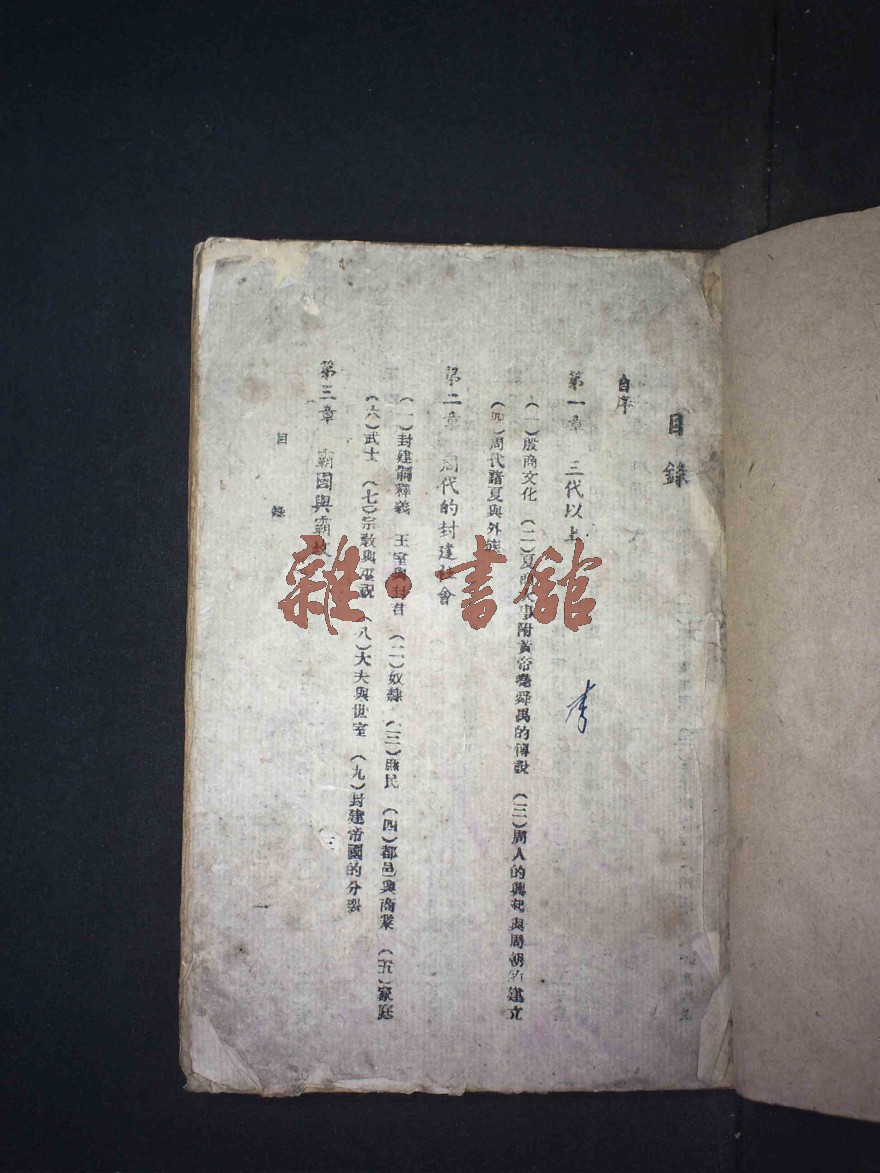 目錄
自序
第一章 三代以上
(一)殷商文化 (二)夏商大事附黃帝堯舜禹的傳說 (三)周人的興起與周朝的建立
(四)周代諸夏與外族
第二章 周代的封建社會
(一)封建制釋義 王室與封君 (二)奴隸 (三)庶民 (四)都邑與商業 (五)家庭
(六)武士 (七)宗敎與巫祝 (八)大夫與世室 (九)封建帝國的分裂
第三章 霸國與霸政
目錄
一
雜·書館